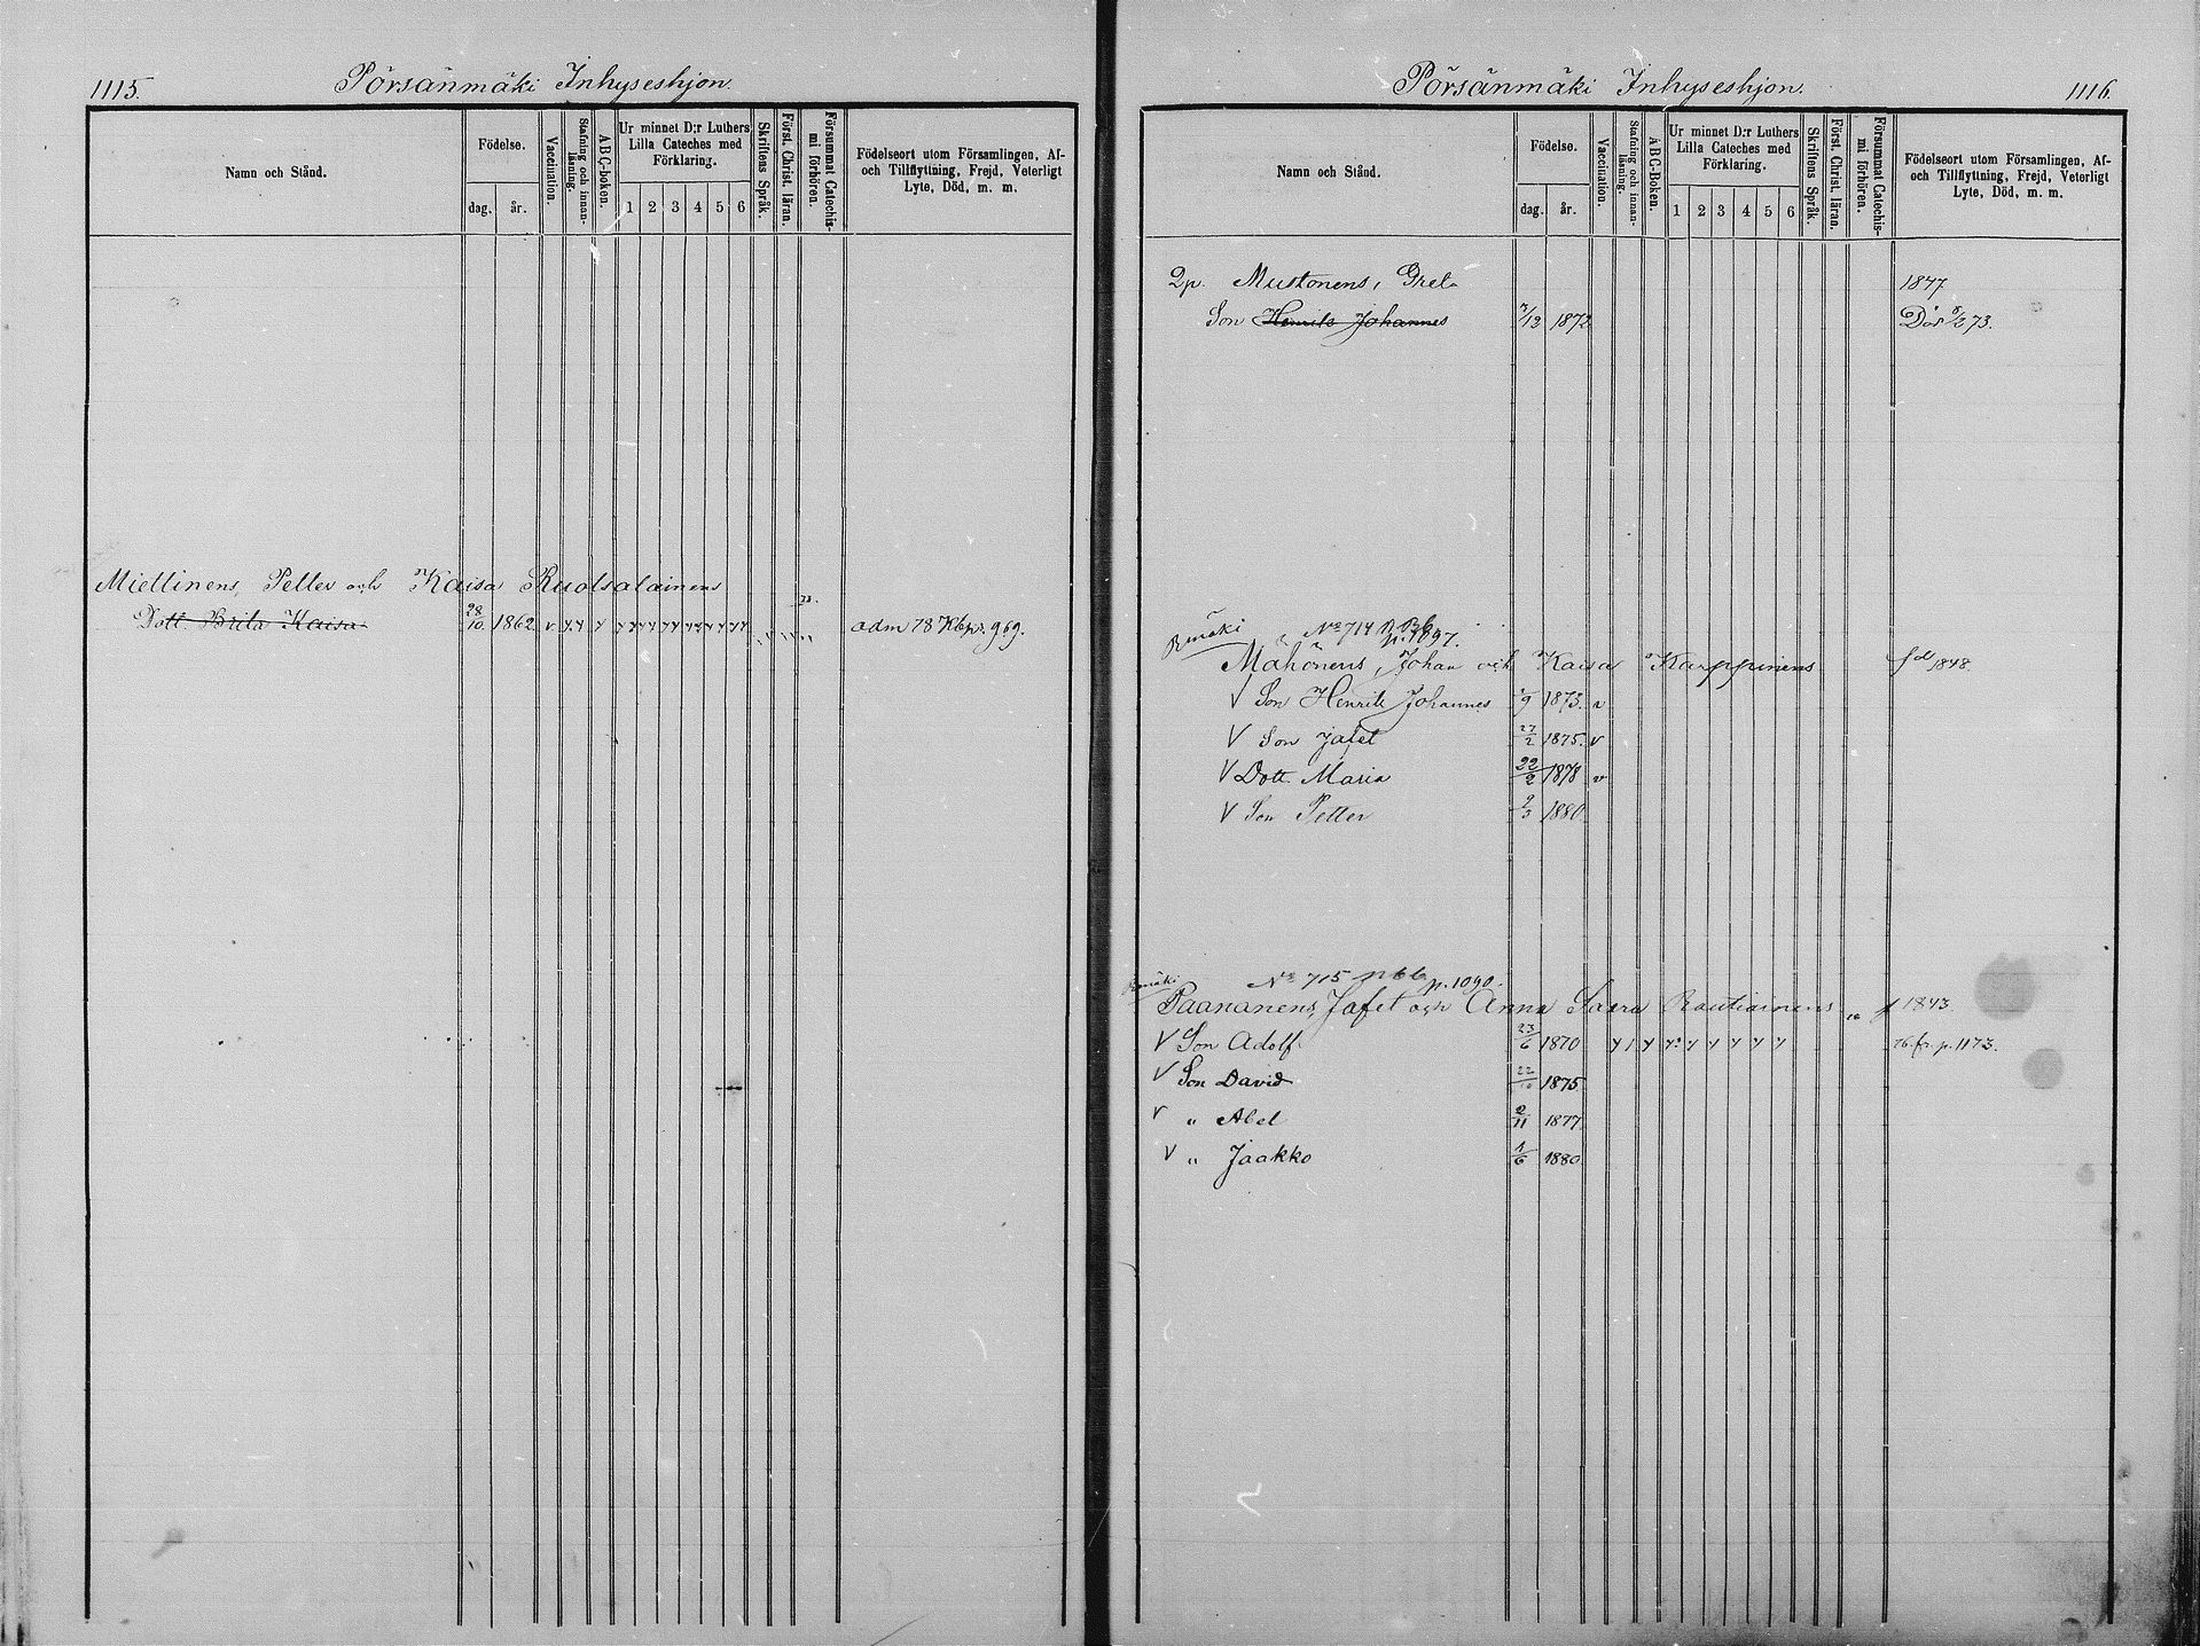 1115.
Pörsänmäki Inhyseshjon.
Namn och Stånd.
Födelse.
dag.
år.
Vaccination.
Stafning och innan-
läsning.
ABC-boken.
Ur minnet D:r Luthers
Lilla Cateches med
Förklaring.
1 2 3 4 5 6
Skriftens Språk.
Först. Christ. läran.
Försummat Catechis-
mi förhören.
Födelseort utom Församlingen, Af-
och Tillflyttning, Frejd, Veterligt
Lyte, Död, m. m.
Miettinens, Petter och Kaisa Ruotsalainens
Dott Brita Kaisa 28/10. 1862 v adm 78 Kbpr. 969.
Pörsänmäki Inhyseshjon.
1116.
Namn och Stånd.
Födelse.
dag.
år.
Vaccination.
Stafning och innan-
läsning.
ABC-Boken.
Ur minnet D:r Luthers
Lilla Cateches med
Förklaring.
1 2 3 4 5 6
Skriftens Språk.
Först. Christ. läran.
Försummat Catechis-
mi förhören.
Födelseort utom Församlingen, Af-
och Tillflyttning, Frejd, Veterligt
Lyte, Död, m. m.
2p. Mustonens, Greta 1847
Son Henrik Johannes 7/12 1872 Död 8/2 73.
Rmäki
No 714
p. 1097.
Mähönens, Johan och Kaisa Karppinens fd 1848.
V Son Henrik Johannes 1873. v
V Son Jafet 27/2 1875. v
V Dott. Maria 22/2 1878 v
V Son Petter 9/3 1880.
No 715
p. 1090.
Paananens, Jafet och Anna Saara Rautiainens f 1843
V Son Adolf 23/6 1870 76. fr. p. 1173.
V Son David 22/10 1875
V " Abel 2/11 1877.
V " Jaakko 1/6 1880